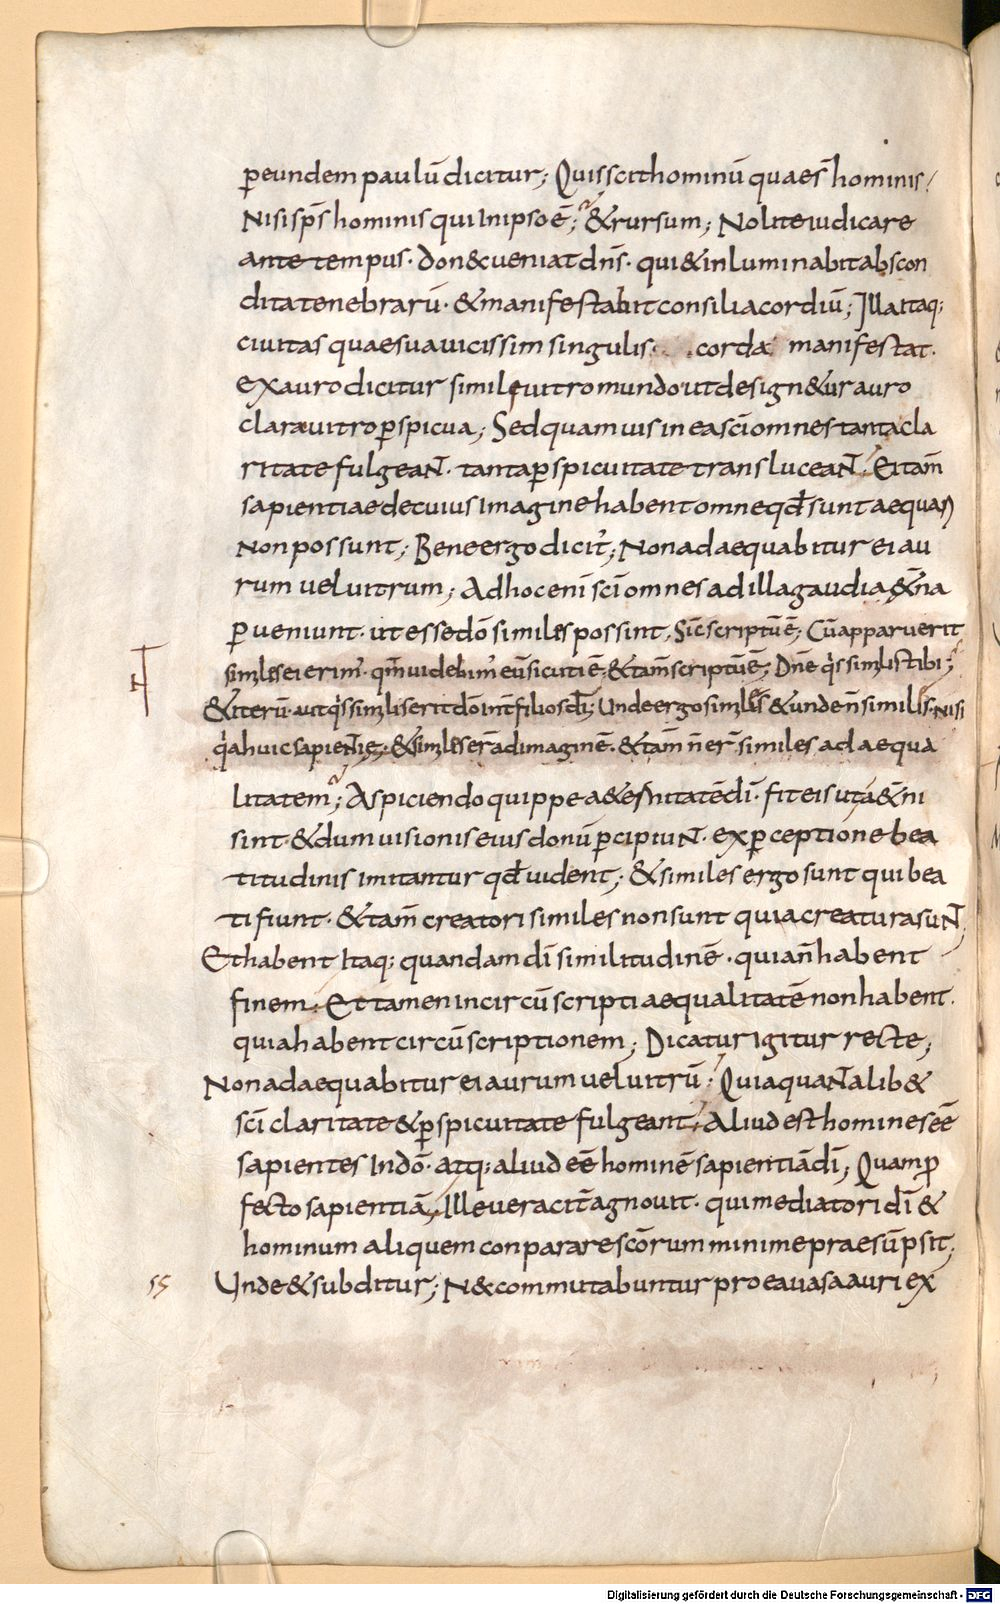 peundem paulū dicitur; Quis scit hominū quae s̄ hominis/
Nisi sp̄s hominis qui inipso ē; & rursum; Nolite iudicare
ante tempus. don&ueniat dn̄s. qui & inluminabit abscon
dita tenebrarū. & manifestabit consilia cordiū; Illa itaq;
ciuitas quae sua uicissim singulis corda manifestat.
ex auro dicitur simile uitro mundo ut design&ur auro
clara uitro pspicua; Sed quamuis in ea sc̄i omnes tanta cla
ritate fulgeant. tanta pspicuitate transluceant. Ei tam̄
sapientiae de cuius imagine habent omne qd̄ sunt aequari
non possunt; Bene ergo dicit̄; Non adaequabitur ei au
rum uel uitrum; Ad hoc eni sc̄i omnes ad illa gaudia &̄na
pueniunt. ut esse dō similes possint, Sic̄ scriptū ē; Cū apparuerit
similes ei erim̄. qm̄ uidebim̄ eū sicuti ē; & tam̄ scriptū ē; Dn̄e q̊s similis tibi;
& iterū. aut q̊s similis erit dō int̄ filios dī; Unde ergo similes & unde n̄ similis. nisi
q̊a huic sapientię. & similes er̄ ad imaginē. & tam̄ n̄ er̄ similes ad aequa
litatem; Aspiciendo quippe a&ernitatē dī. fit eis ut a&̄ni
sint. & dum uisionis eius donū pcipiunt. ex pceptione bea
titudinis imitantur qd̄ uident; & similes ergo sunt qui bea
ti fiunt. & tam̄ creatori similes non sunt quia creatura sunt,
Et habent itaq; quandam dī similitudinē. quia n̄ habent
finem; Et tamen incircūscripti aequalitatē non habent.
quia habent circūscriptionem; Dicatur igitur recte;
Non adaequabitur ei aurum uel uitrū; Quia quantalib&
sc̄i claritate & pspicuitate fulgeant; Aliud est homines eē
sapientes in dō. atq; aliud eē hominē sapientiā dī; Quam p
fecto sapientiā, Ille ueracit̄ agnouit. qui mediatori dī &
hominum aliquem conparare sc̄orum minime praesūpsit;
Unde & subditur; N& commutabuntur pro ea uasa auri ex